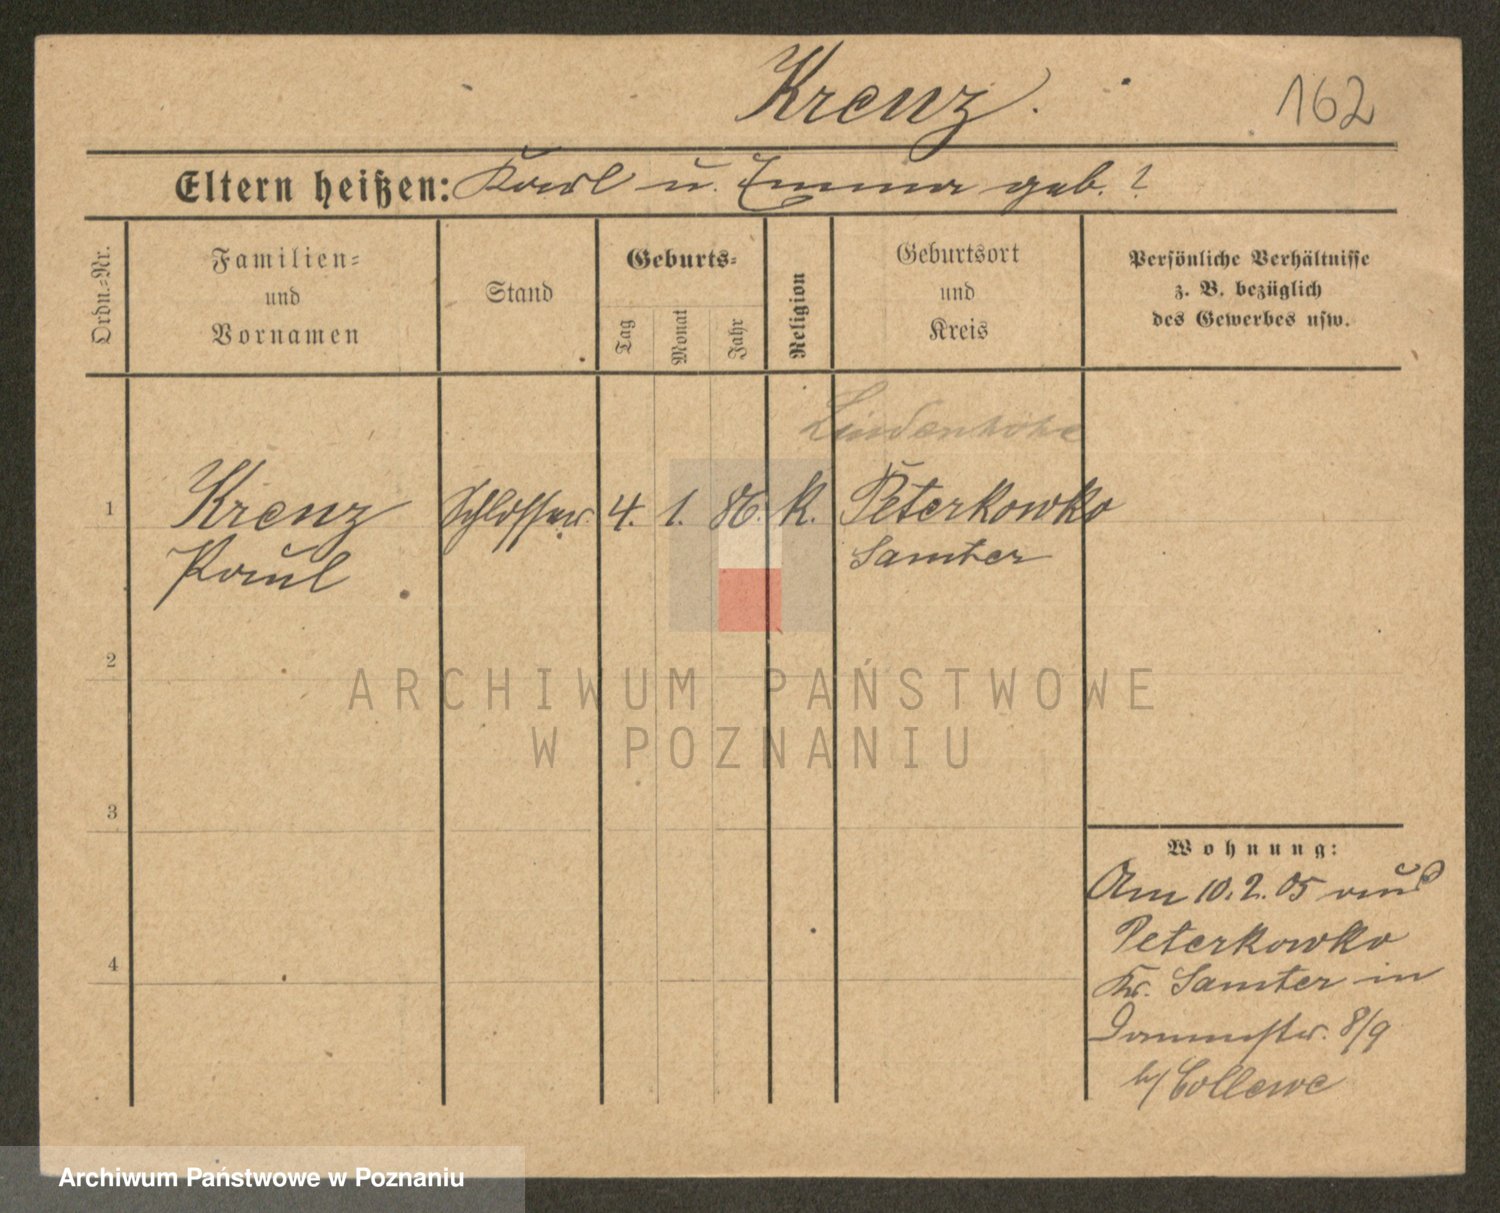 Krenz.
162
Eltern heißen: Karl u. Emma geb. ?
Ordn.-Nr.
Familien-
und
Vornamen
Stand
Geburts-
Tag
Monat
Jahr
Religion
Geburtsort
und
Kreis
Persönliche Verhältnisse
z. B. bezüglich
des Gewerbes usw.
Lindenhöhe
1 Krenz Schlosser 4. 1. 86. K. Peterkowko
Paul Samter
2
3
4
Wohnung:
Am 10.2.05 aus
Peterkowko
Kr. Samter in
Dammstr. 8/9
b/ Collewe
ARCHIWUM PAŃSTWOWE
W POZNANIU
Archiwum Państwowe w Poznaniu